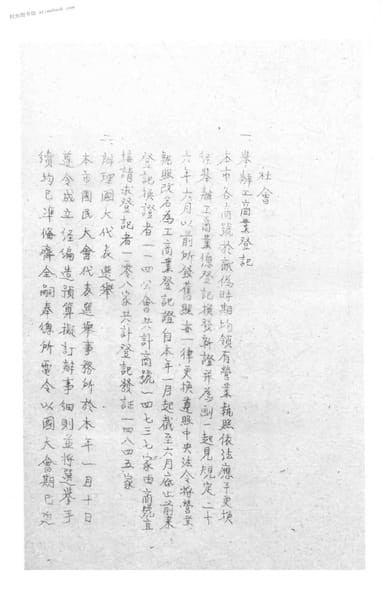 社會
一 舉辦工商業登記
本市各商號於敵偽時期均領有營業執照依法應予更換
經舉辦工商業總登記換發新證並為劃一起見規定二十
六年六月以前所發舊照亦一律更換遵照中央法令將營業
執照改名為工商業登記證自本年一月起截至六月底止前來
登記換證者一一四公會共計商號一四七三七家由商號直
接請求登記者一零八家共計登記發証一四八四五家
二 辦理國大代表選舉
本市國民大會代表選舉事務所於本年一月十日
遵令成立經編造預算擬訂辦事細則並將選舉手
續均已準備齊全嗣奉總所電令以國大會期已迄